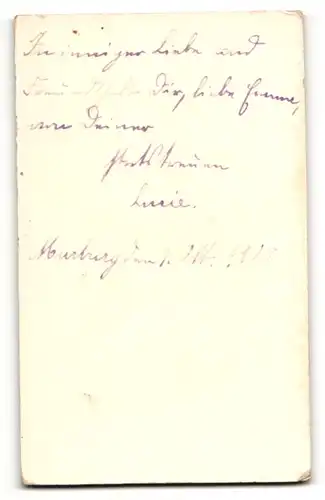 In inniger Liebe und
Dir, liebe Emma,
von Deiner
stets treuen
Lucie.
Marburg den 1.